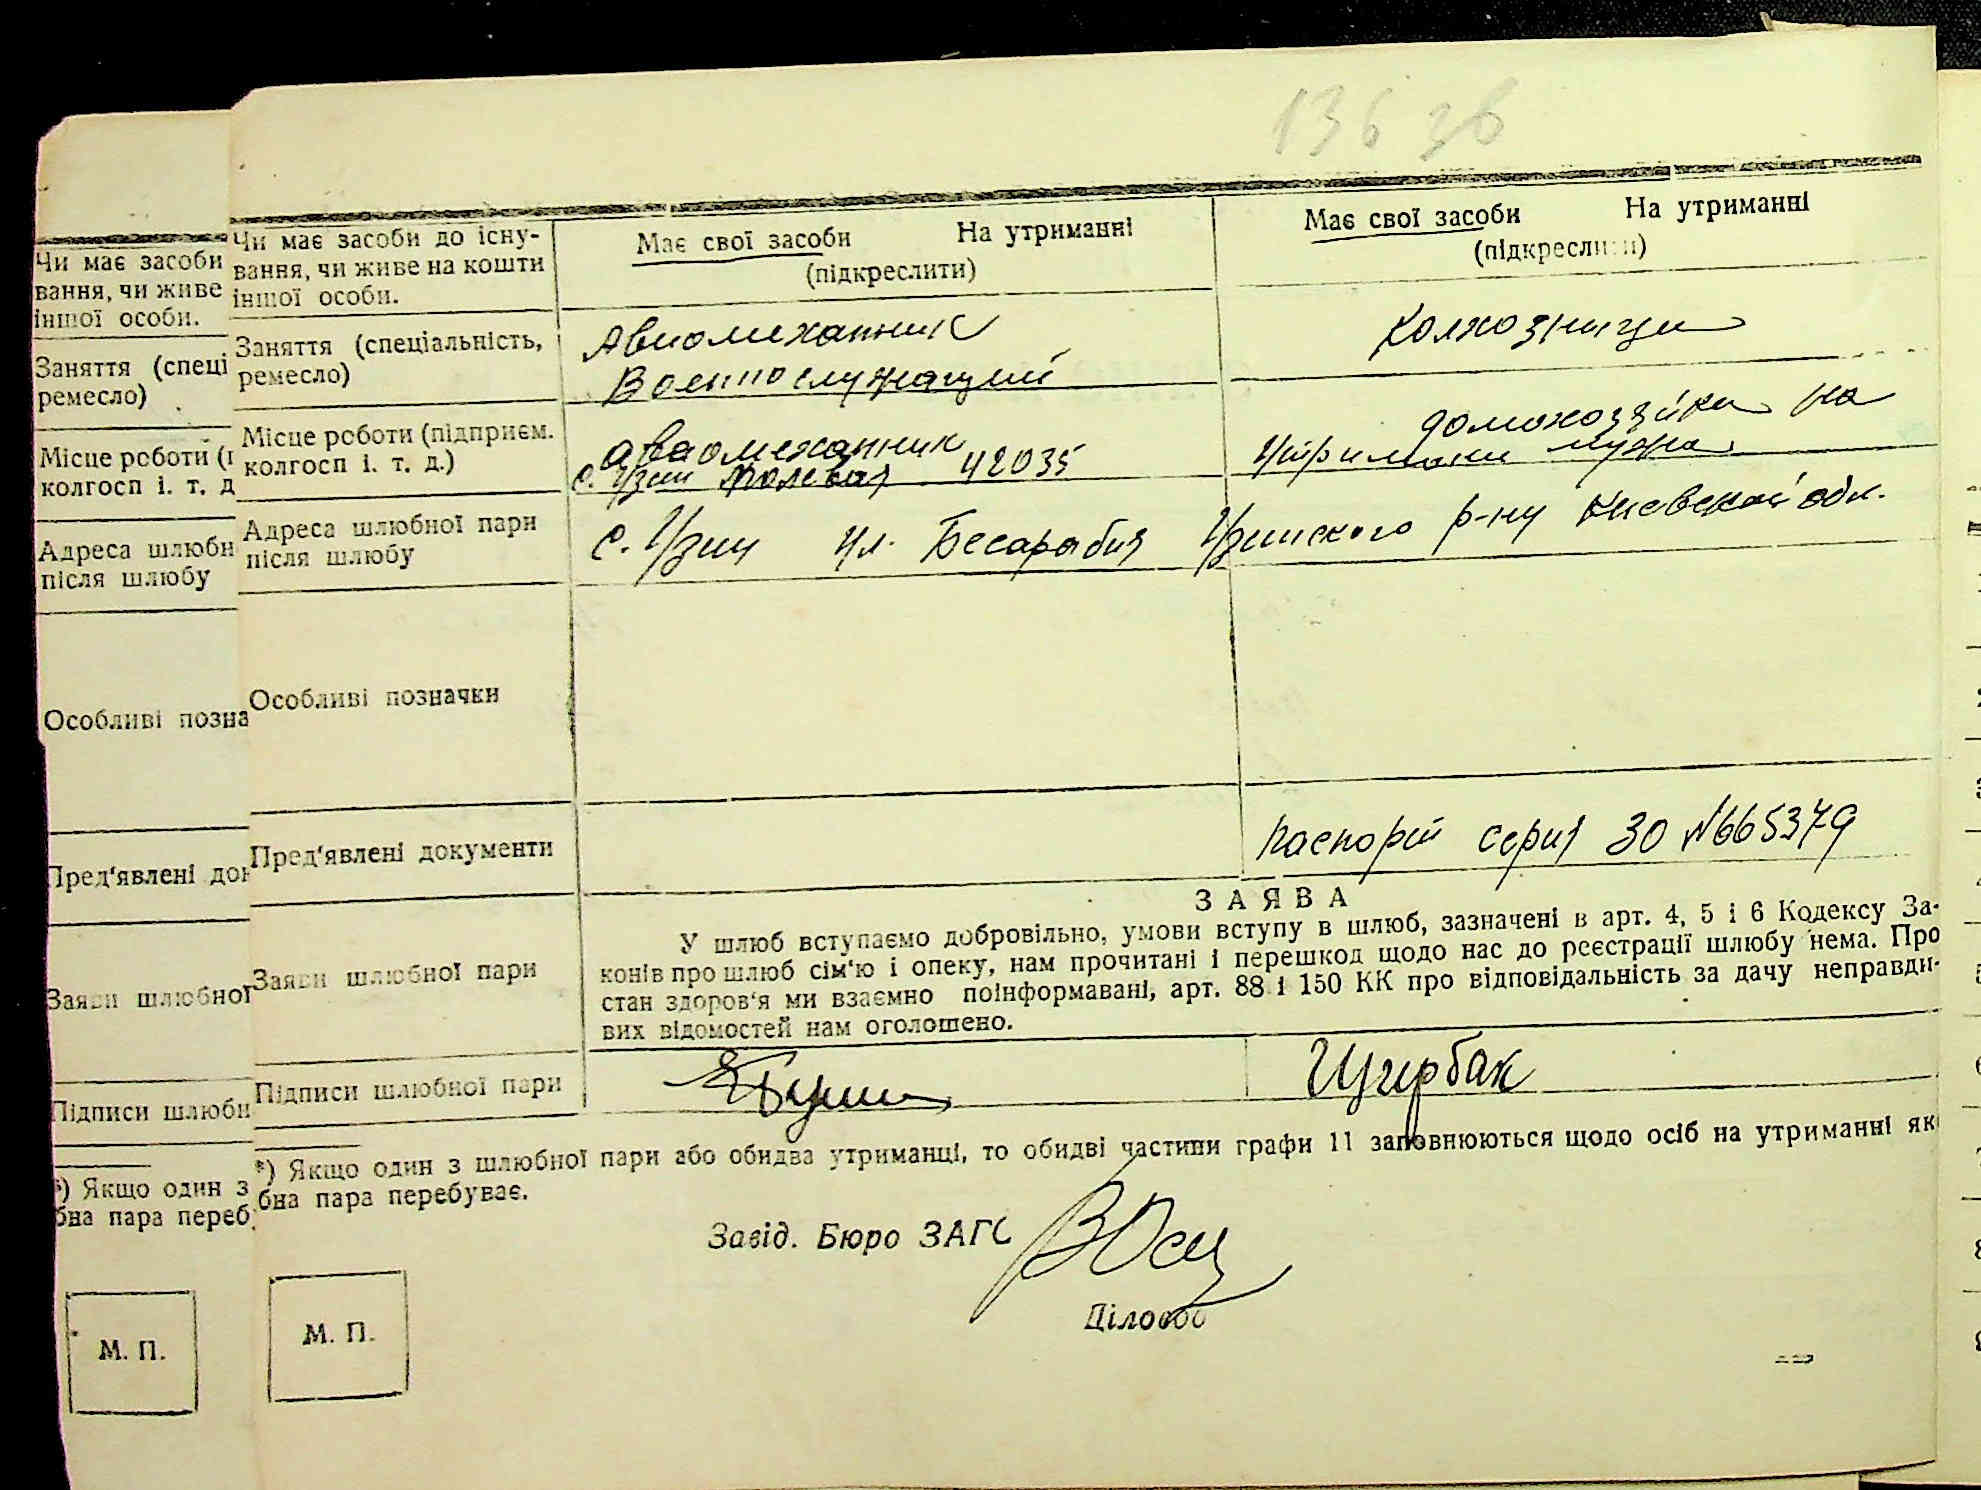 136 зв
Чи має засоби до існу-
вання, чи живе на кошти
іншої особи.
Має свої засоби На утриманні
(підкреслити)
Має свої засоби На утриманні
(підкреслити)
Заняття (спеціальність,
ремесло)
Авиомеханник
Военнослужащий
Колхозница
Місце роботи (підприєм.
колгосп і. т. д.)
авиомеханник
с. Узин Полевая 42035
домохозяйка на
утримани мужа
Адреса шлюбної пари
після шлюбу
с. Узин ул. Бесарабия Узинского р-ну Киевской обл.
Особливі позначки
Пред‘явлені документи
паспорт серия 30 №665379
Заяви шлюбної пари
ЗАЯВА
У шлюб вступаємо добровільно, умови вступу в шлюб, зазначені в арт. 4, 5 і 6 Кодексу За-
конів про шлюб сім‘ю і опеку, нам прочитані і перешкод щодо нас до реєстрації шлюбу нема. Про
стан здоров‘я ми взаємно поінформавані, арт. 88 і 150 КК про відповідальність за дачу неправди-
вих відомостей нам оголошено.
Підписи шлюбної пари
Щербак
*) Якщо один з шлюбної пари або обидва утриманці, то обидві частини графи 11 заповнюються щодо осіб на утриманні як
бна пара перебуває.
Завід. Бюро ЗАГС
Діловод
М. П.
Чи має засоби
вання, чи живе
іншої особи.
Заняття (спеці
ремесло)
Місце роботи (
колгосп і. т. д
Адреса шлюбн
після шлюбу
Особливі позна
Пред‘явлені док
Заяви шлюбної
Підписи шлюбн
*) Якщо один з
бна пара переб
М. П.